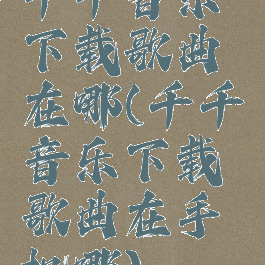 千千音乐
下载歌曲
在哪(千千
音乐下载
歌曲在手
机哪)